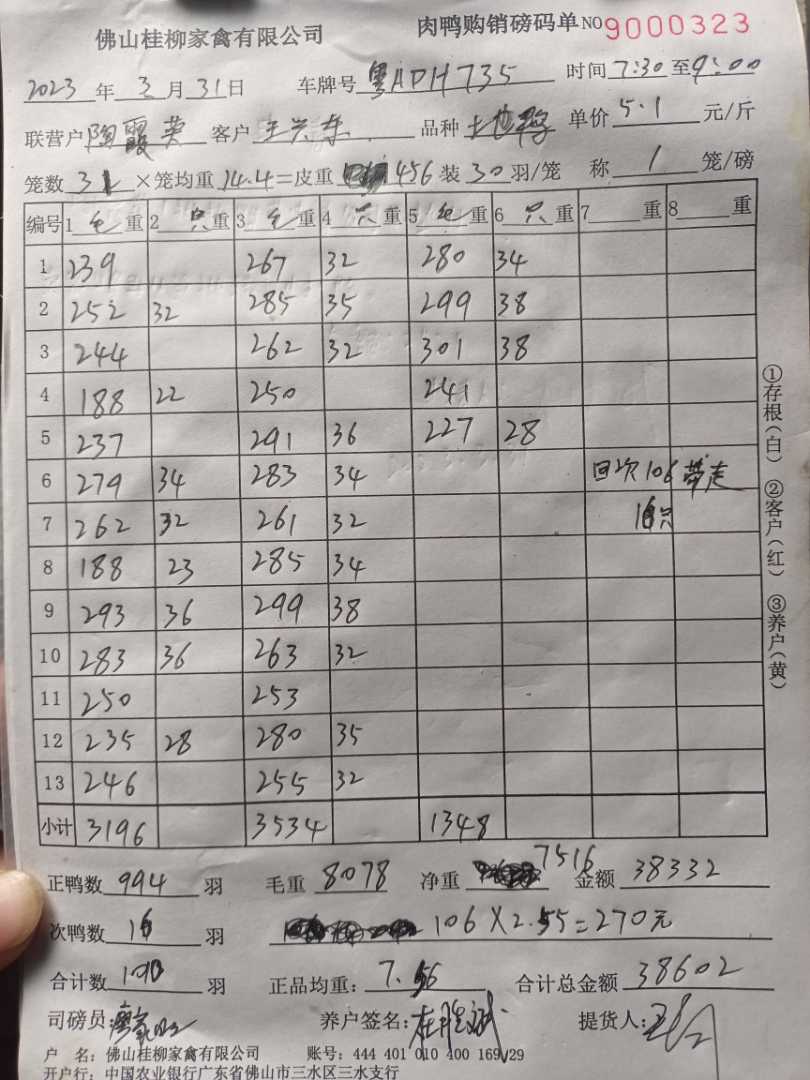 佛山桂柳家禽有限公司 肉鸭购销磅码单 NO 9000323
2023 年 3 月 31 日 车牌号 粤ADH735 时间 7:30 至 9:00
联营户 陶霞英 客户 王兴东 品种 单价 5.1 元/斤
笼数 31 ×笼均重 14.4 =皮重 456 装 30 羽/笼 称 1 笼/磅
编号 1 毛 重 2 只 重 3 毛 重 4 只 重 5 毛 重 6 只 重 7 重 8 重
1 239 267 32 280 34
2 252 32 285 35 299 38
3 244 262 32 301 38
4 188 22 250 241
5 237 291 36 227 28
6 279 34 283 34 回次106 带走
7 262 32 261 32 16只
8 188 23 285 34
9 293 36 299 38
10 283 36 263 32
11 250 253
12 235 28 280 35
13 246 255 32
小计 3196 3534 1348
正鸭数 994 羽 毛重 8078 净重 7516 金额 38332
次鸭数 16 羽 106×2.55=270元
合计数 1010 羽 正品均重: 7.56 合计总金额 38602
司磅员: 养户签名: 提货人:
户 名: 佛山桂柳家禽有限公司 账号: 444 401 010 400 169 29
开户行: 中国农业银行广东省佛山市三水区三水支行
①存根(白) ②客户(红) ③养户(黄)